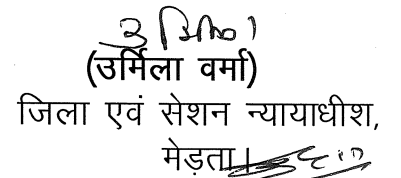 उर्मिला
(उर्मिला वर्मा)
जिला एवं सेशन न्यायाधीश,
मेड़ता।